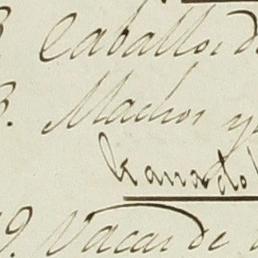 Caballos de
8. Machos y
Ganado
9. Vacas de